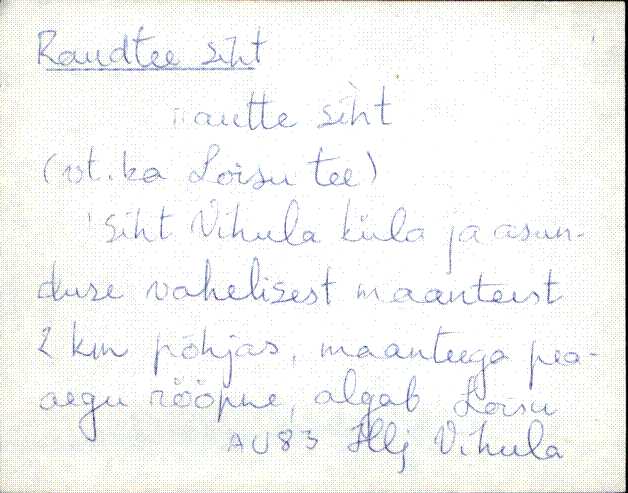 Raudtee siht
rautte siht
(vt. ka Loisu tee)
Siht Vihula küla ja asun-
duse vahelisest maanteest
2 km põhjas, maanteega pea-
aegu rööpne, algab Loisu
AU83 Hlj Vihula